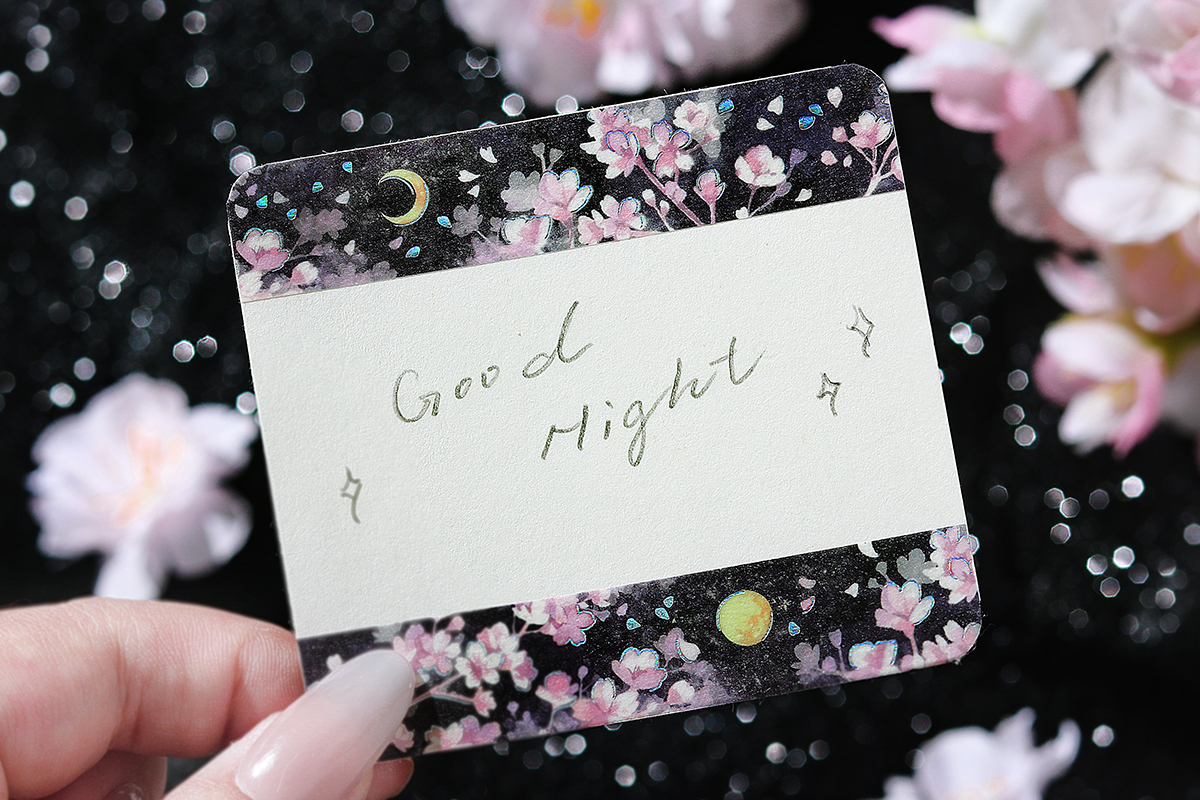 Good
Night